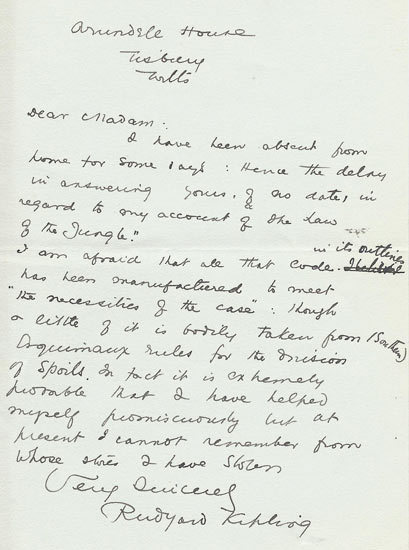 Arundell House
Tisbury
Wilts
Dear Madam:
I have been absent from
home for some days: Hence the delay
in answering yours, of no date, in
regard to my account of "the Law
of the Jungle."
I am afraid that all that code in its outlines
has been manufactured to meet
"the necessities of the case": though
a little of it is bodily taken from (Southern)
Esquimaux rules for the division
of spoils. In fact it is extremely
probable that I have helped
myself promiscuously but at
present I cannot remember from
whose stories I have stolen
Very Sincerely
Rudyard Kipling